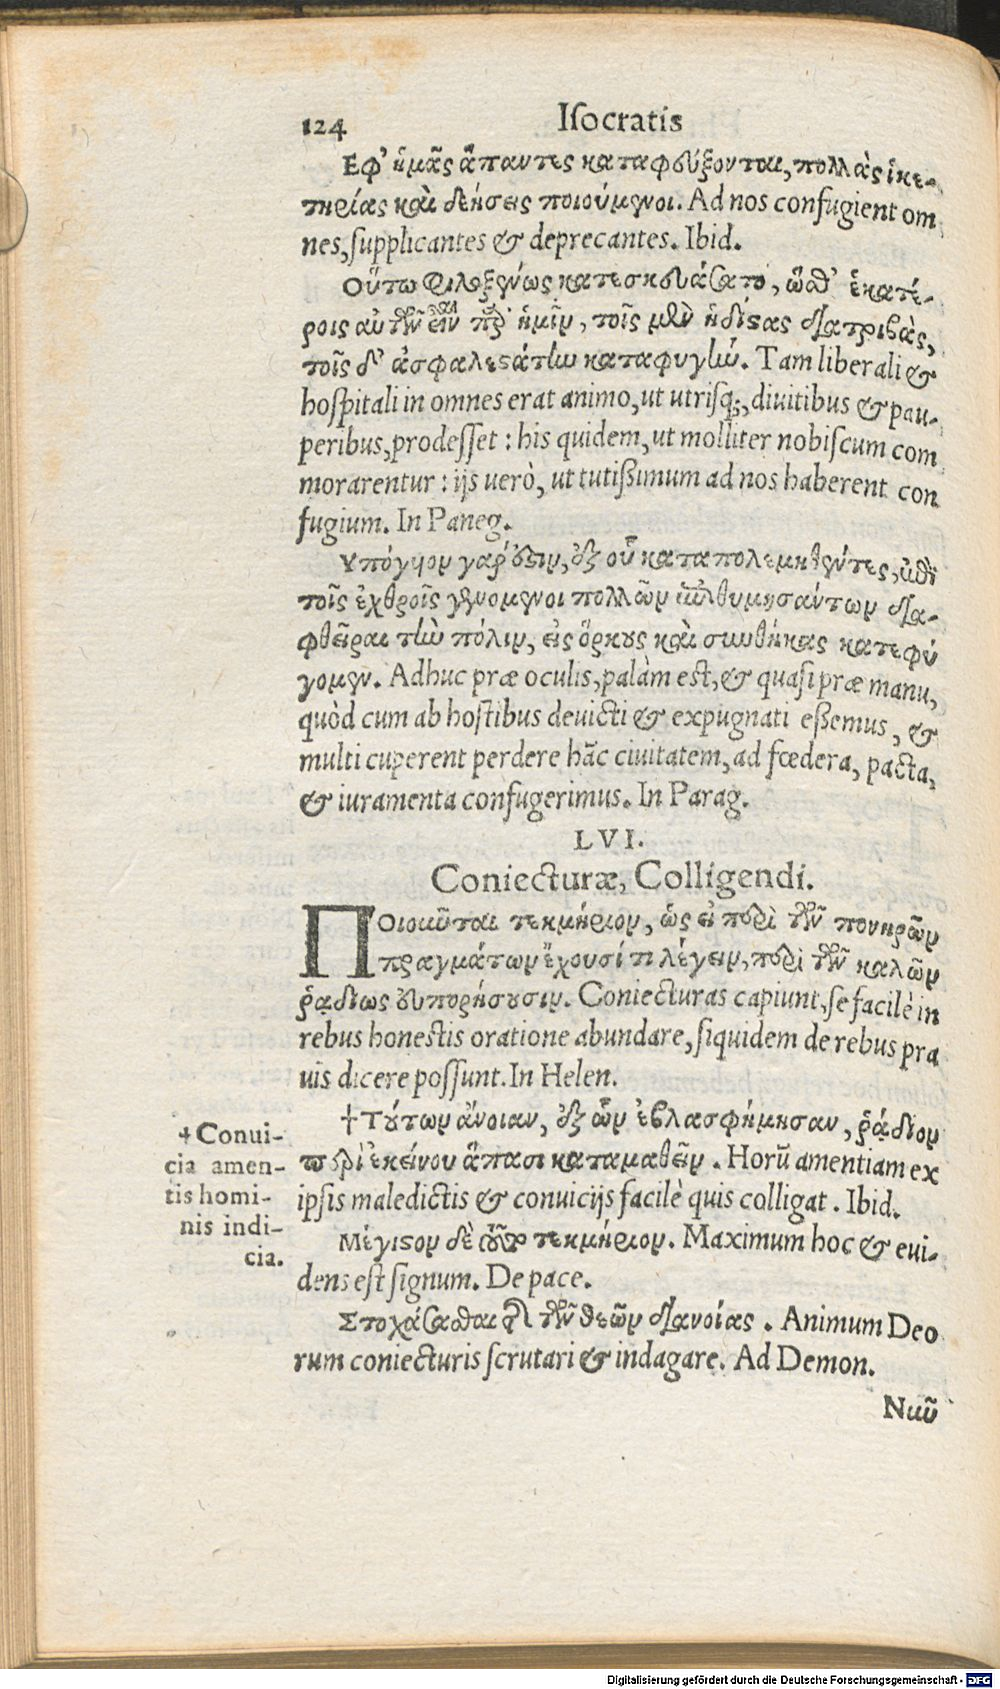 124 Iſocratis
Εφ' ἡμᾶς ἅπαντες καταφεύξονται, πολλὰς ἱκε-
τηρίας καὶ δεήσεις ποιούμενοι. Ad nos confugient om
nes, ſupplicantes & deprecantes. Ibid.
Οὕτω φιλοξένως κατεσκευάσατο, ὥσθ' ἑκατέ-
ροις αὐτῶν εἶναι παρ' ἡμῖν, τοῖς μὲν ἡδίστας διατριβὰς,
τοῖς δ' ἀσφαλεστάτην καταφυγήν. Tam liberali &
hoſpitali in omnes erat animo, ut utriſq;, diuitibus & pau-
peribus, prodeſſet: his quidem, ut molliter nobiſcum com
morarentur: ijs uerò, ut tutißimum ad nos haberent con
fugium. In Paneg.
Υπόγυον γάρ ἐστιν, ἐξ οὗ καταπολεμηθέντες, ἐπὶ
τοῖς ἐχθροῖς γενόμενοι πολλῶν ἐπιθυμησάντων δια-
φθεῖραι τὴν πόλιν, εἰς ὅρκους καὶ συνθήκας κατεφύ
γομεν. Adhuc præ oculis, palàm est, & quaſi præ manu,
quòd cum ab hoſtibus deuicti & expugnati eßemus, &
multi cuperent perdere hãc ciuitatem, ad fœdera, pacta,
& iuramenta confugerimus. In Parag.
LVI.
Coniecturæ, Colligendi.
ΠΟιοῦνται τεκμήριον, ὡς εἰ περὶ τῶν πονηρῶν
πραγμάτων ἔχουσί τι λέγειν, περὶ τῶν καλῶν
ῥᾳδίως εὐπορήσουσιν. Coniecturas capiunt, ſe facilè in
rebus honeſtis oratione abundare, ſiquidem de rebus pra
uis dicere poſſunt. In Helen.
†Τούτων ἄνοιαν, ἐξ ὧν ἐβλασφήμησαν, ῥᾴδιον
περὶ ἐκείνου ἅπασι καταμαθεῖν. Horũ amentiam ex
ipſis maledictis & conuicijs facilè quis colligat. Ibid.
†Conui-
cia amen-
tis homi-
nis indi-
cia.
Μέγιστον δὲ τεκμήριον. Maximum hoc & eui-
dens eſt ſignum. De pace.
Στοχάσασθαι τῶν θεῶν διανοίας. Animum Deo
rum coniecturis ſcrutari & indagare. Ad Demon.
Νῦν